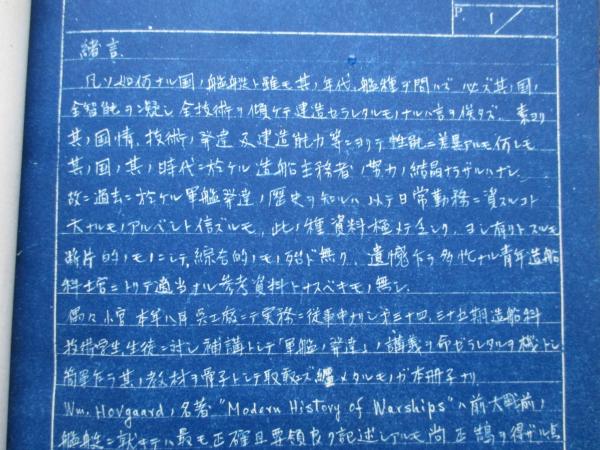 P. 1/
緒言
凡ソ如何ナル国ノ艦艇ト雖モ其ノ年代、艦種ヲ問ハズ必ズ其ノ国ノ
全智能ヲ凝シ全技術ヲ傾ケテ建造セラレタルモノナルハ言ヲ俟タズ。素ヨリ
其ノ国情、技術ノ発達及建造能力等ニヨリテ性能ニ差異アルモ何レモ
其ノ国ノ其ノ時代ニ於ケル造船主務者ノ努力ノ結晶ナラザルハナシ。
故ニ過去ニ於ケル軍艦発達ノ歴史ヲ知ルハ以テ日常勤務ニ資スルコト
大ナルモノアルベシト信ズルモ、此ノ種資料極メテ乏シク、ヨシ有リトスルモ
断片的ノモノニシテ、綜合的ノモノ殆ド無ク、遺憾乍ラ多忙ナル青年造船
科士官ニトリテ適当ナル参考資料トナスベキモノ無シ。
偶々小官本年八月呉工廠ニテ実務ニ従事中ナリシ第三十四、三十五期造船科
技術学生、生徒ニ対シ補講トシテ「軍艦ノ発達」ノ講義ヲ命ゼラレタルヲ機トシ
簡単乍ラ其ノ教材ヲ骨子トシテ取敢ズ纏メタルモノガ本冊子ナリ
Wm. Hovgaardノ名著 "Modern History of Warships" ハ前大戦前ノ
艦艇ニ就キテハ最モ正確且要領良ク記述シアルモ尚正鵠ヲ得ザル点